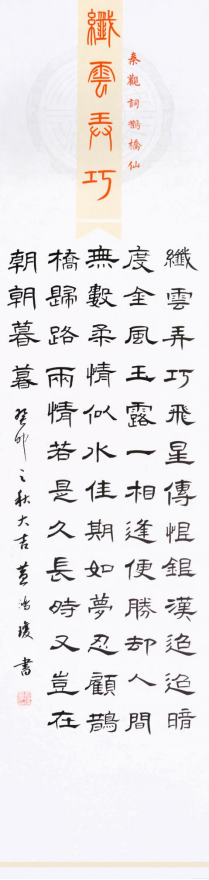 纖雲弄巧
秦觀詞鵲橋仙
纖雲弄巧飛星傳恨銀漢迢迢暗
度金風玉露一相逢便勝却人間
無數柔情似水佳期如夢忍顧鵲
橋歸路兩情若是久長時又豈在
朝朝暮暮
癸卯之秋大吉黃鴻書